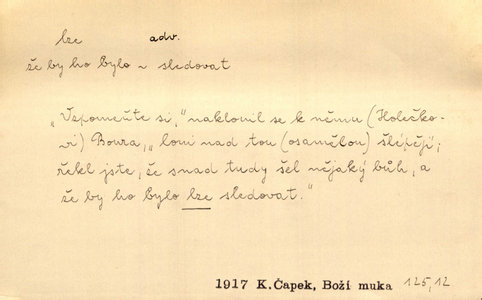 lze adv.
že by ho bylo ~ sledovat
„Vzpomeňte si," naklonil se k němu (Holečko-
vi) Boura, „loni nad tou (osamělou) šlépějí;
řekl jste, že snad tudy šel nějaký bůh, a
že by ho bylo lze sledovat."
1917 K.Čapek, Boží muka 125,12